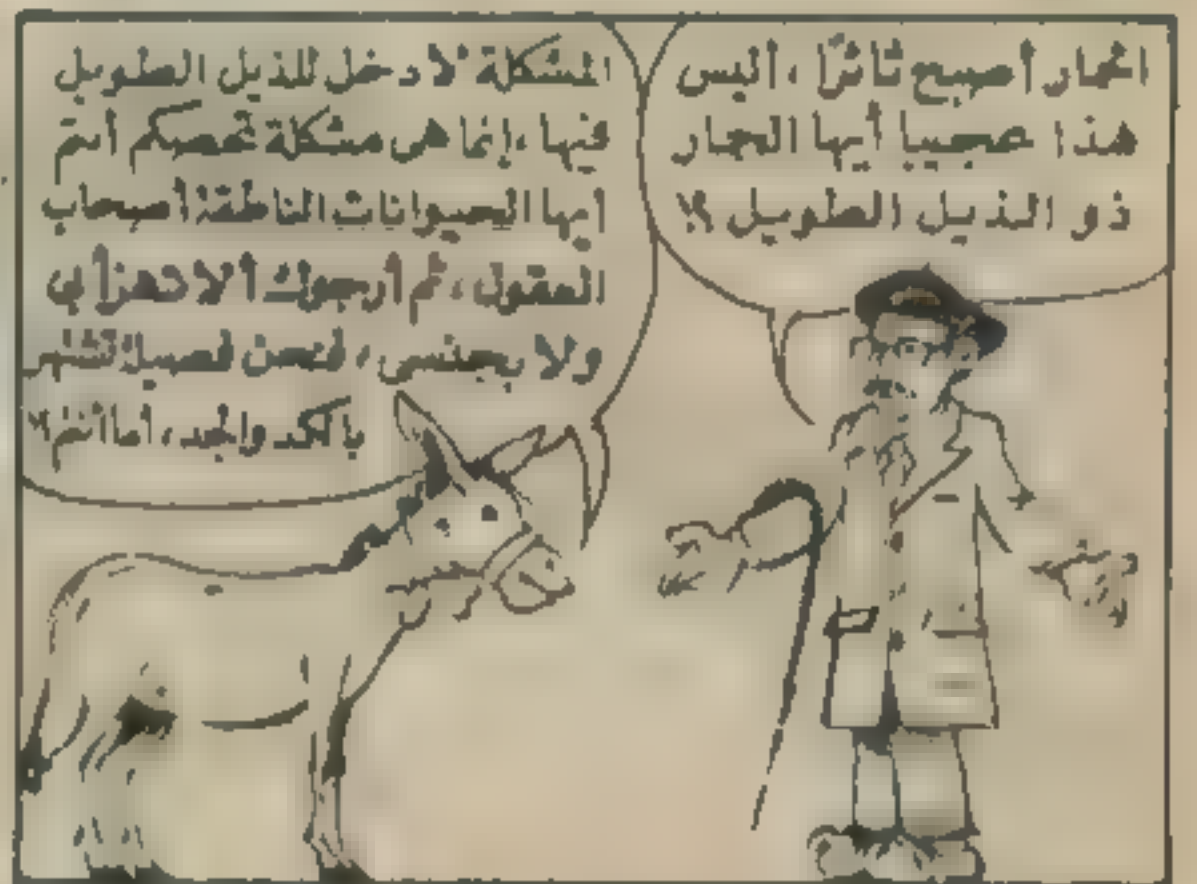 الحمار أصبح ثائرًا، أليس
هذا عجيبا أيها الحمار
ذو الذيل الطويل ؟!
المشكلة لا دخل للذيل الطويل
فيها، إنما هى مشكلة تخصكم أنتم
أيها الحيوانات الناطقة أصحاب
العقول، ثم أرجوك ألا تهزأ بي
ولا بجنسى، فنحن فصيلة تشتهر
بالكد والجد، أما أنتم؟!